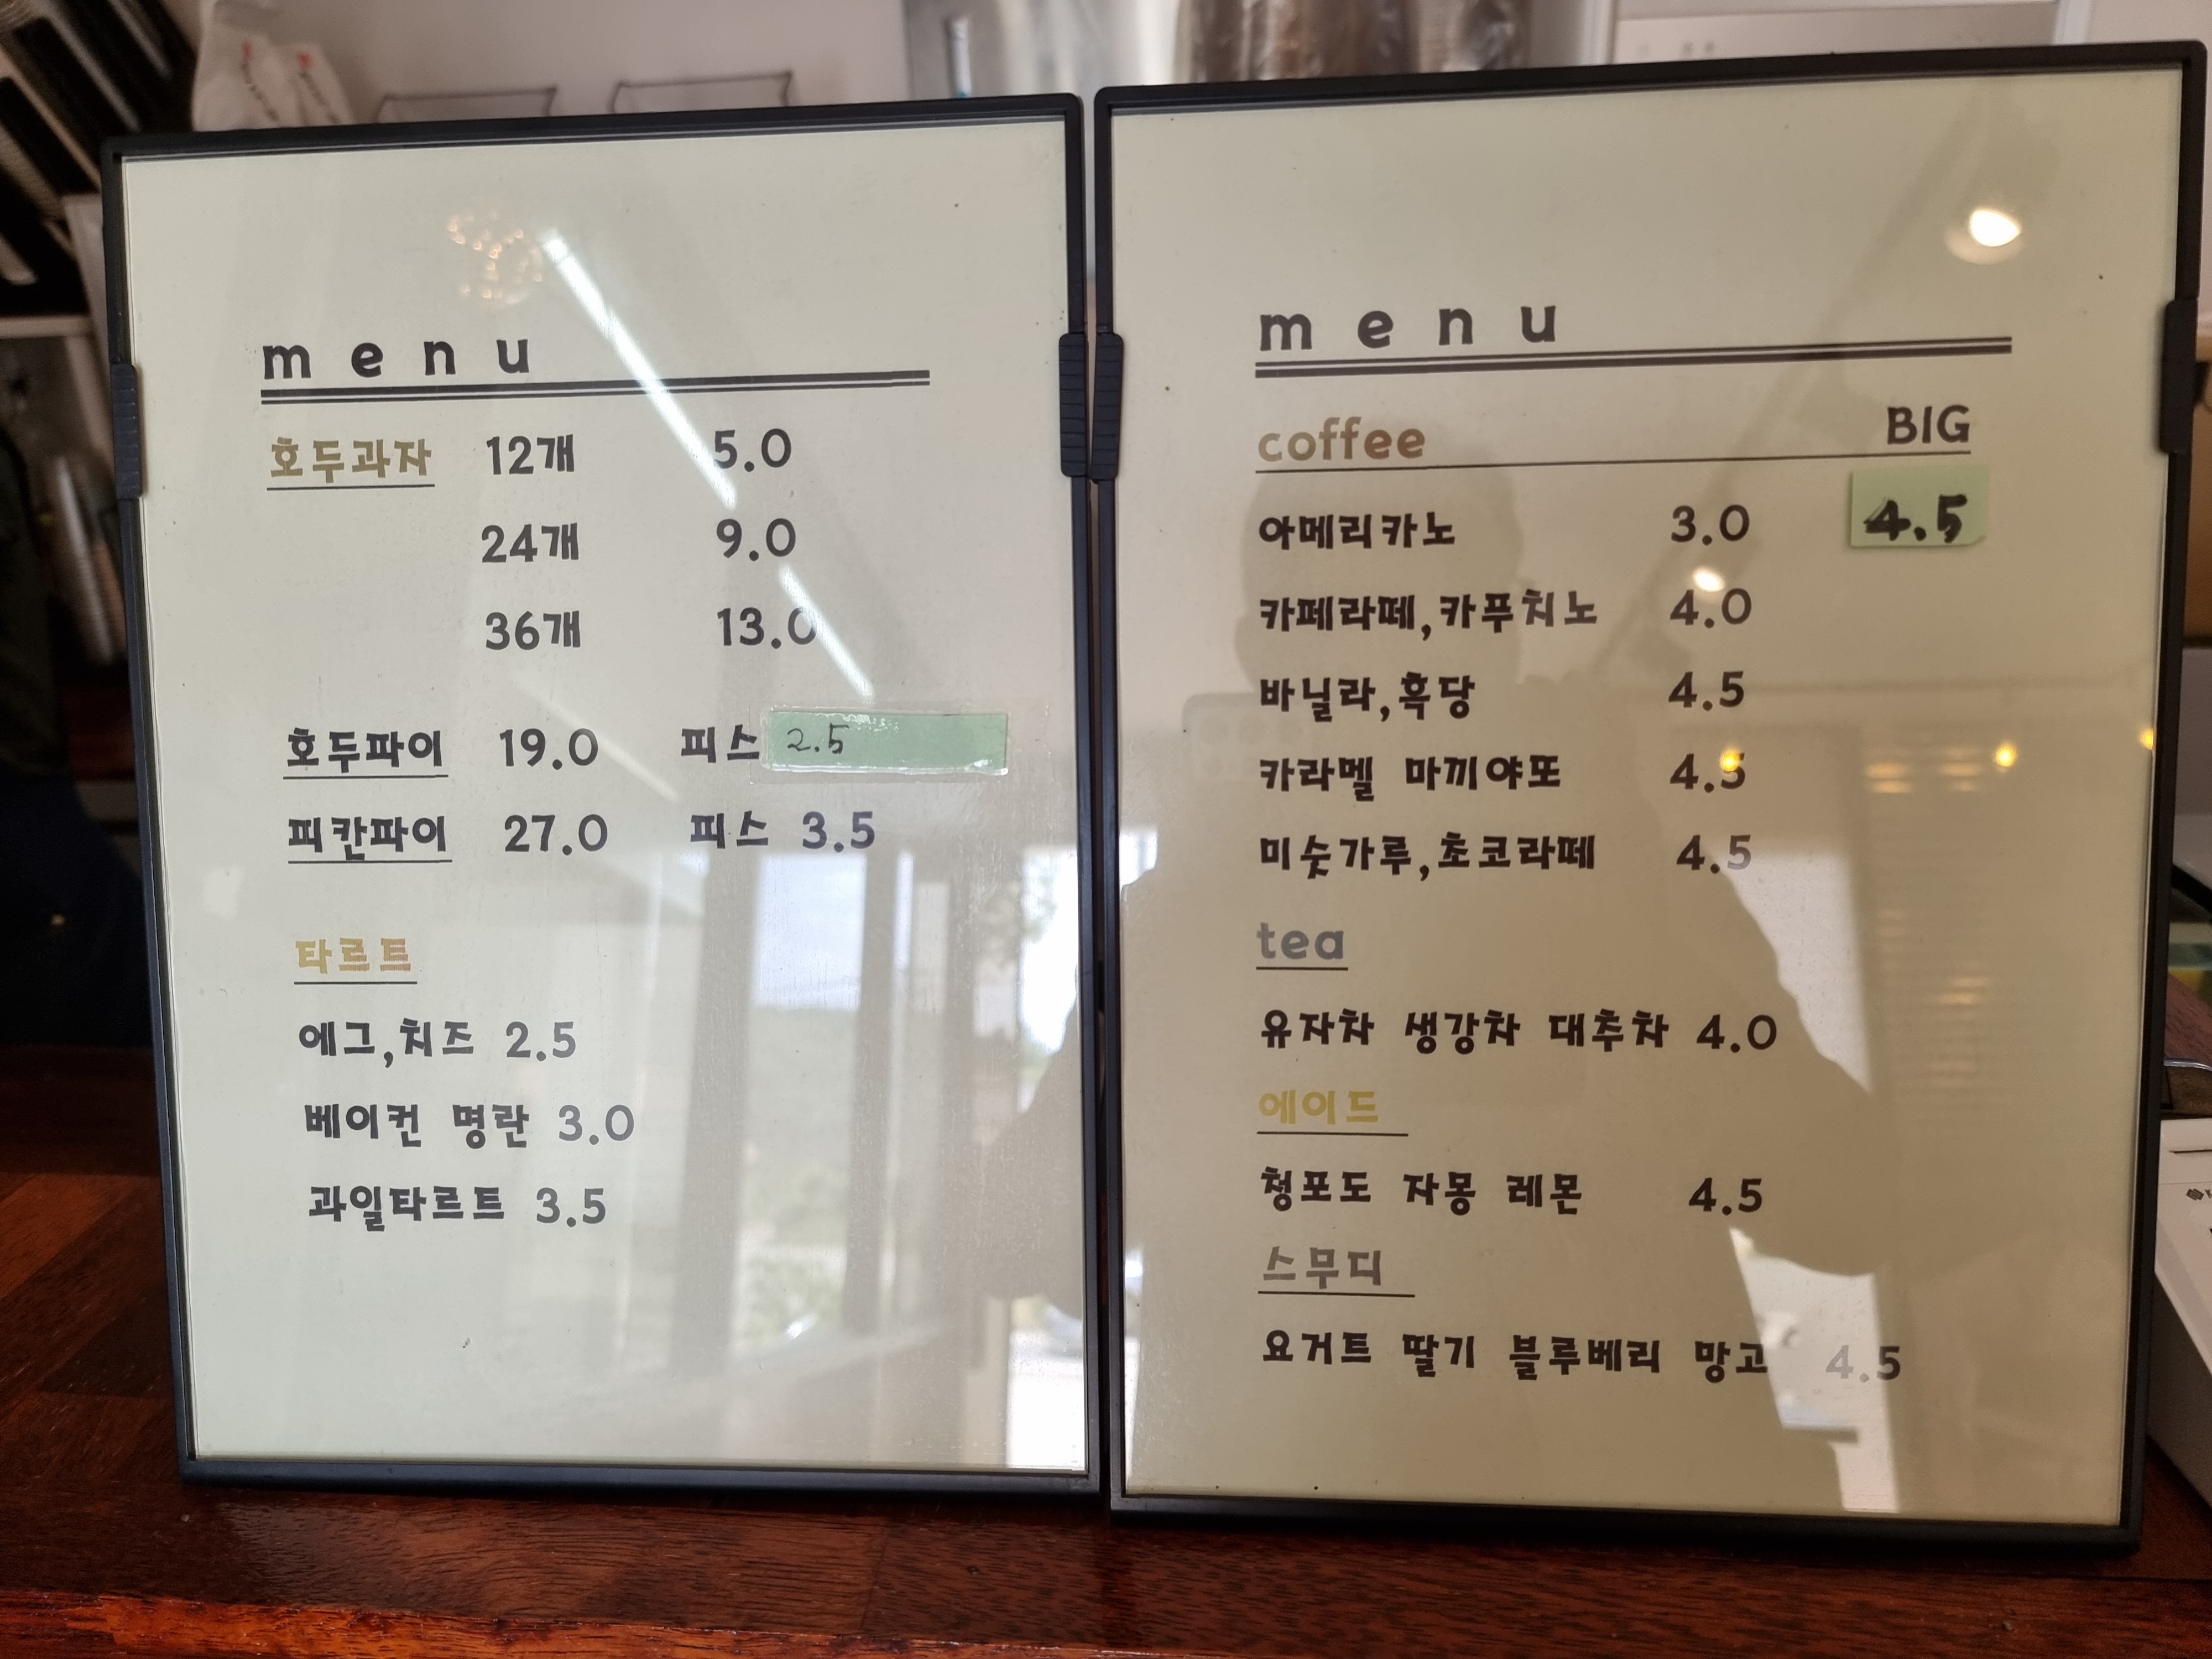 menu
호두과자 12개 5.0
24개 9.0
36개 13.0
호두파이 19.0 피스 2.5
피칸파이 27.0 피스 3.5
타르트
에그,치즈 2.5
베이컨 명란 3.0
과일타르트 3.5
menu
coffee BIG
아메리카노 3.0 4.5
카페라떼,카푸치노 4.0
바닐라,흑당 4.5
카라멜 마끼야또 4.5
미숫가루,초코라떼 4.5
tea
유자차 생강차 대추차 4.0
에이드
청포도 자몽 레몬 4.5
스무디
요거트 딸기 블루베리 망고 4.5